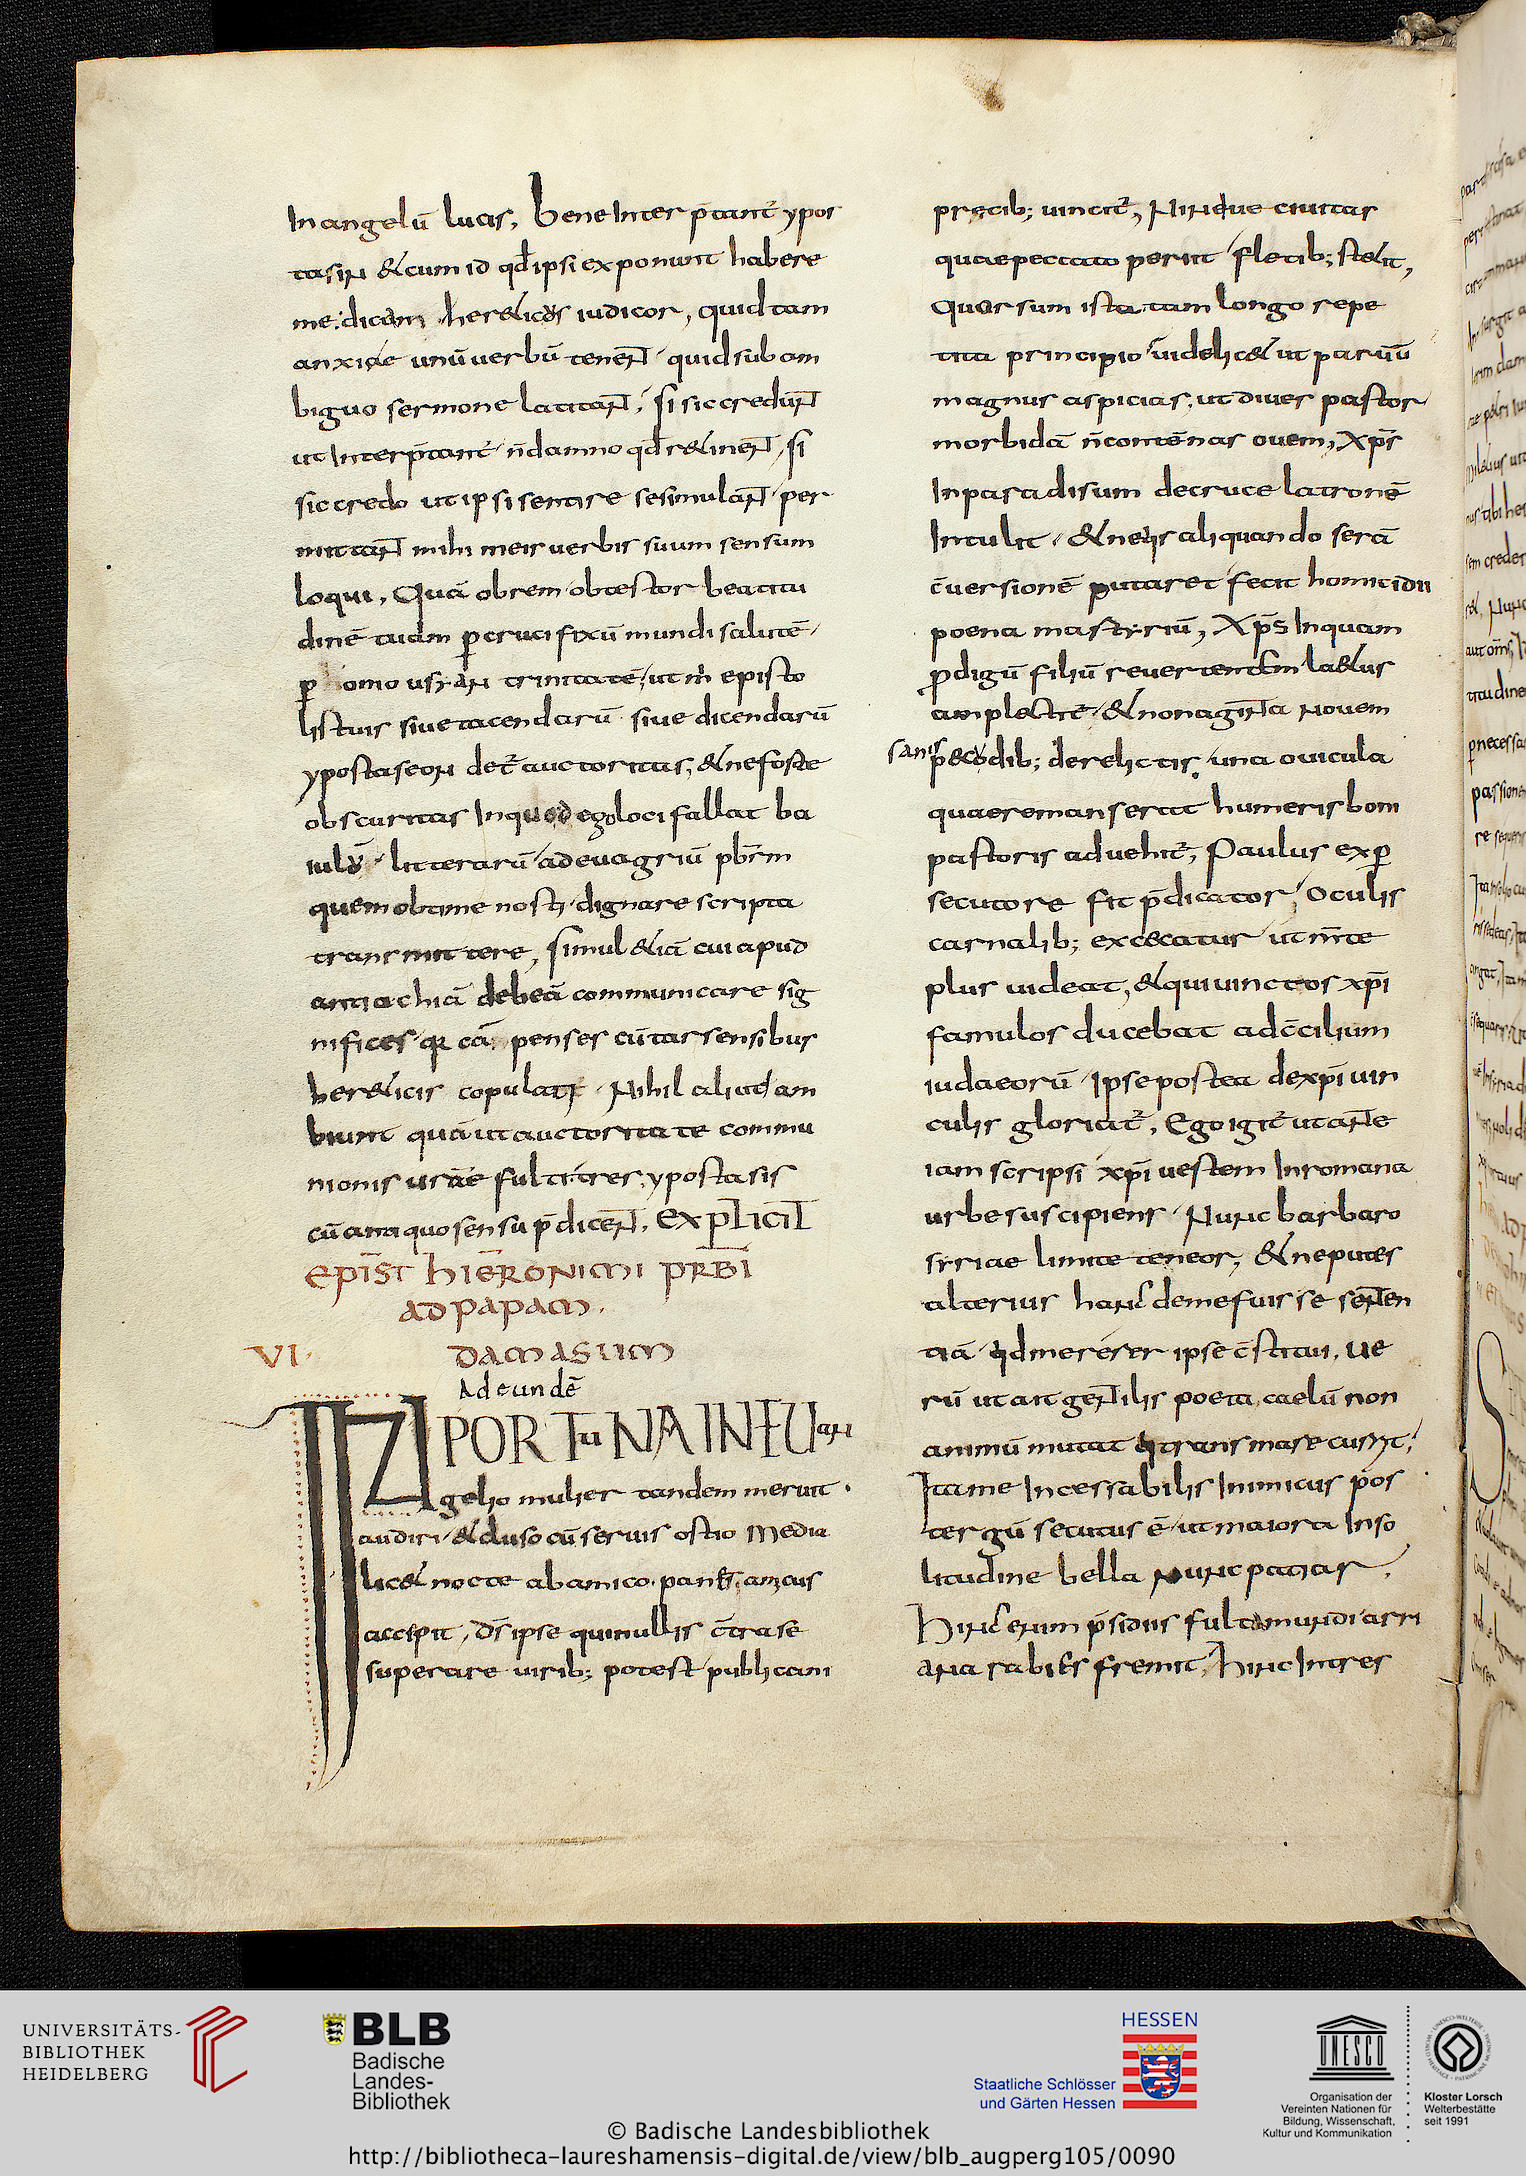 In angelū lucis, bene Inter p̄tant᷑ ypos
tasin & cum id qđ ipsi exponunt habere
me dicam her&icus iudicor, quid tam
anxiae unū uerbū tenen̄t quid sub am
biguo sermone latitan̄t, si sic credun̄t
ut Interp̄tant᷑ n̄ damno qđ r&inen̄t, si
sic credo ut ipsi sentire se simulan̄t per
mittan̄t mihi meis uerbis suum sensum
loqui, Quā obrem obtestor beatitu
dinē tuam p̱ crucifixū mundi salutē
p̱ omousian trinitatē ut m̄ episto
lis tuis siue tacendarū siue dicendarū
ypostaseon det᷑ auctoritas, & ne forte
obscuritas In quo dego loci fallat ba
iulos litterarū ad euagriū pb̄rm
quem obtime nosti dignare scripta
transmittere, simul &iā cui apud
antiochiā debeā communicare sig
nifices qa cā penses cū tarsensibus
her&icis copulati Nihil aliud am
biunt quā ut auctoritate commu
nionis urāe fulti tres ypostasis
cū antiquo sensu p̄dicen̄t, EXPLICIT
EPIST HIERONIMI PRBI
AD PAPAM.
VI. DAMASUM
Ad eundē
INPORTUNA IN EUan
gelio mulier tandem meruit
audiri & cluso cū seruis ostio media
lic& nocte ab amico panes amicus
accipit, dš ipse qui nullis c̄tra se
superare uirib; potest publicani
precib; uincit᷑, Nineue ciuitas
quae peccato periit fletib; st&it,
Quorsum ista tam longo repe
tita principio uidelic& ut paruū
magnus aspicias, ut diues pastor
morbidā n̄ contēnas ouem, Xp̄s
In paradisum de cruce latronē
Intulit & ne quis aliquando serā
c̄uersionē putaret fecit homicidii
poena martyriū, Xp̄s Inquam
p̱digū filiū reuertentem la&us
amplectit᷑ & nonagin̄ta nouem
sanis pecodib; derelictis una ouicula
quae remanserat humeris boni
pastoris aduehit᷑, Paulus ex p̱
secutore fit p̄dicator, Oculis
carnalib; excecatur ut m̄te
plus uideat, & qui uinctos xp̄i
famulos ducebat ad c̄cilium
iudaeorū ipse postea de xp̄i uin
culis gloriat᷑, Ego igit᷑ ut an̄te
iam scripsi xp̄i uestem In romana
urbe suscipiens Nunc barbaro
syriae limite teneor, & ne putes
alterius hanc de me fuisse sen̄ten
tiā qđ mererer ipse c̄stitui, ue
rū ut ait gen̄tilis poeta caelū non
animū mutat qui trans mare currit,
Ita me Incessabilis Inimicus pos
tergū secutus ē ut maiora In so
litudine bella nunc patiar.
Hinc enim p̄sidiis fulta mundi arri
ana rabies fremit, Hinc In tres
UNIVERSITÄTS-
BIBLIOTHEK
HEIDELBERG
BLB
Badische
Landes-
Bibliothek
HESSEN
Staatliche Schlösser
und Gärten Hessen
UNESCO
Organisation der
Vereinten Nationen für
Bildung, Wissenschaft,
Kultur und Kommunikation
Kloster Lorsch
Welterbestätte
seit 1991
© Badische Landesbibliothek
http://bibliotheca-laureshamensis-digital.de/view/blb_augperg105/0090